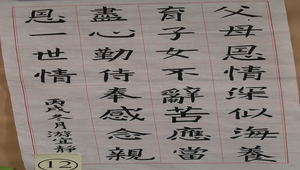 父母恩情深似海養
育子女不辭苦應當
盡心勤侍奉感念親
恩一世情
丙戌冬月游宜靜
12